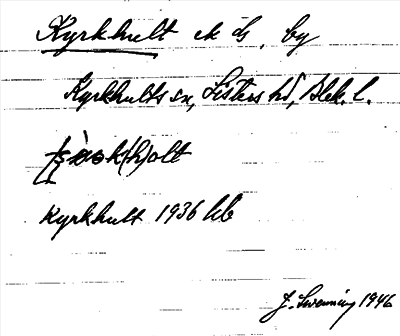 Kyrkhult ek ds, by
Kyrkhults sn, Listers hd, Blek. l.
k(h)olt
Kyrkhult 1936 kb
J. Swenning 1946